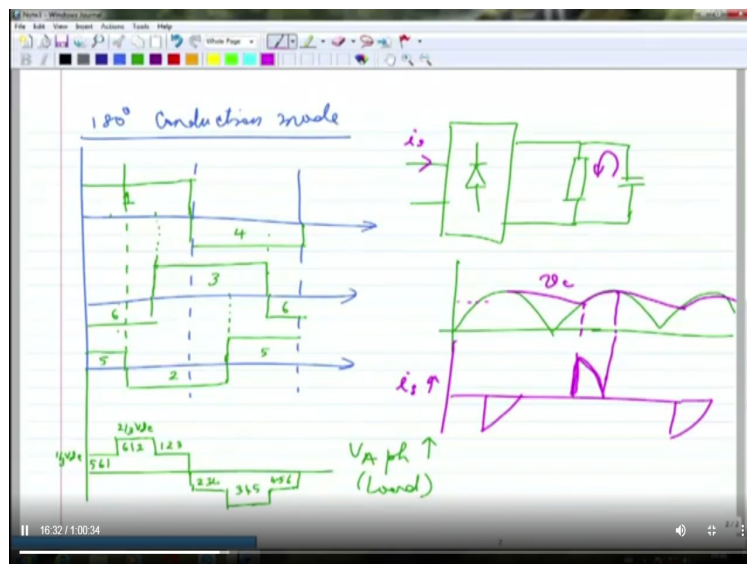 Note1 - Windows Journal
File Edit View Insert Actions Tools Help
Whole Page
B I
180° Conduction mode
1
4
3
6
6
5
5
2
2/3 Vdc
1/3 Vdc
561
612
123
234
345
456
VA ph ↑
(Load)
is
vc
is ↑
16:32 / 1:00:34
2
2/2